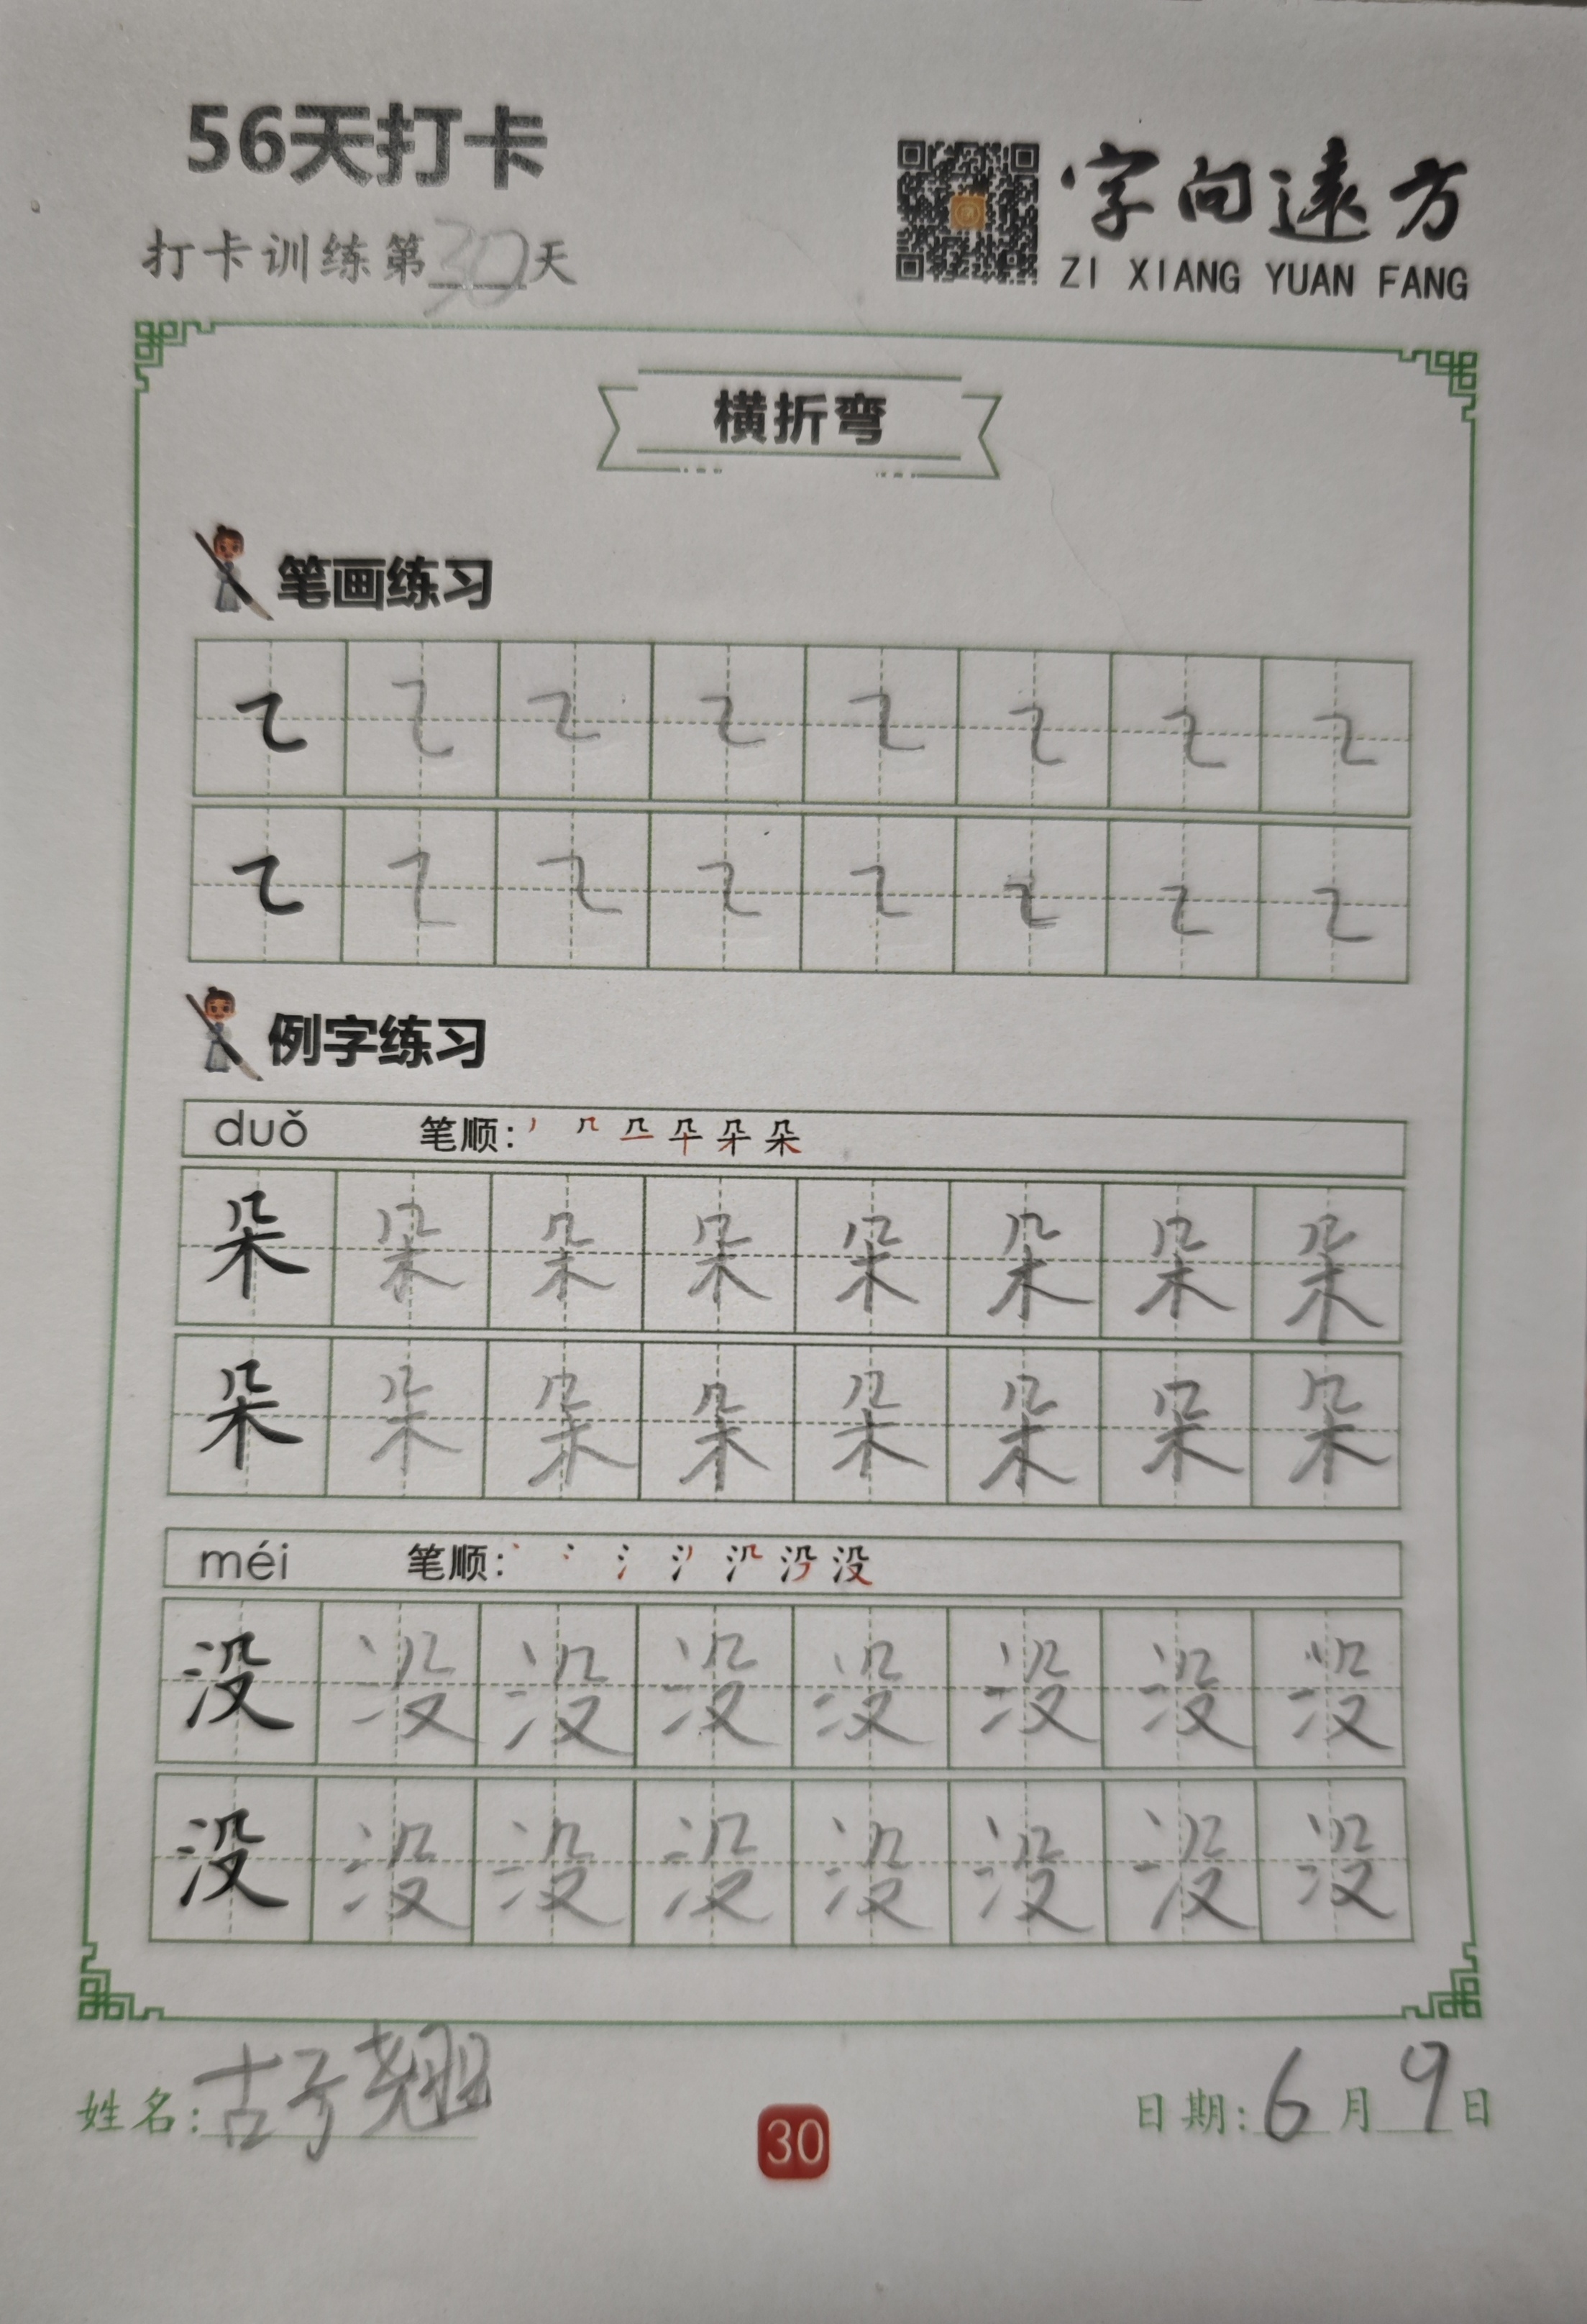 56天打卡
打卡训练第30天
字向遠方
ZI XIANG YUAN FANG
横折弯
笔画练习
例字练习
duǒ 笔顺:
朵 朵 朵 朵 朵 朵 朵 朵
朵 朵 朵 朵 朵 朵 朵 朵
méi 笔顺:
没 没 没 没 没 没 没 没
没 没 没 没 没 没 没 没
姓名:
30
日期:6月9日